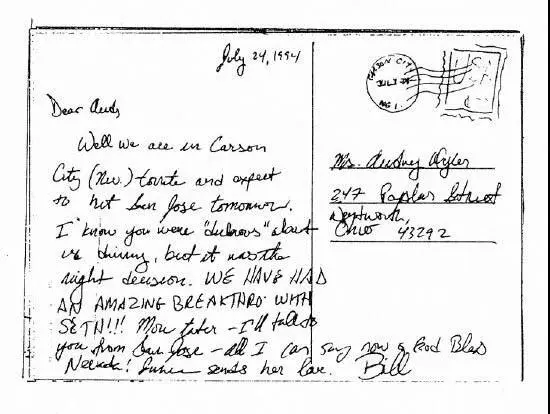 July 24, 1994
Dear Auds,
Well we are in Carson
City (Nev.) tonite and expect
to hit San Jose tomorrow.
I know you were "dubious" about
us driving, but it was the
right decision. WE HAVE HAD
AN AMAZING BREAKTHRO WITH
SETH!!! More later – I'll talk to
you from San Jose – all I can say now is God Bless
Nevada! sends her love. Bill
CARSON CITY
JUL
Ms. Audrey
247 Poplar Street
Ohio 43292